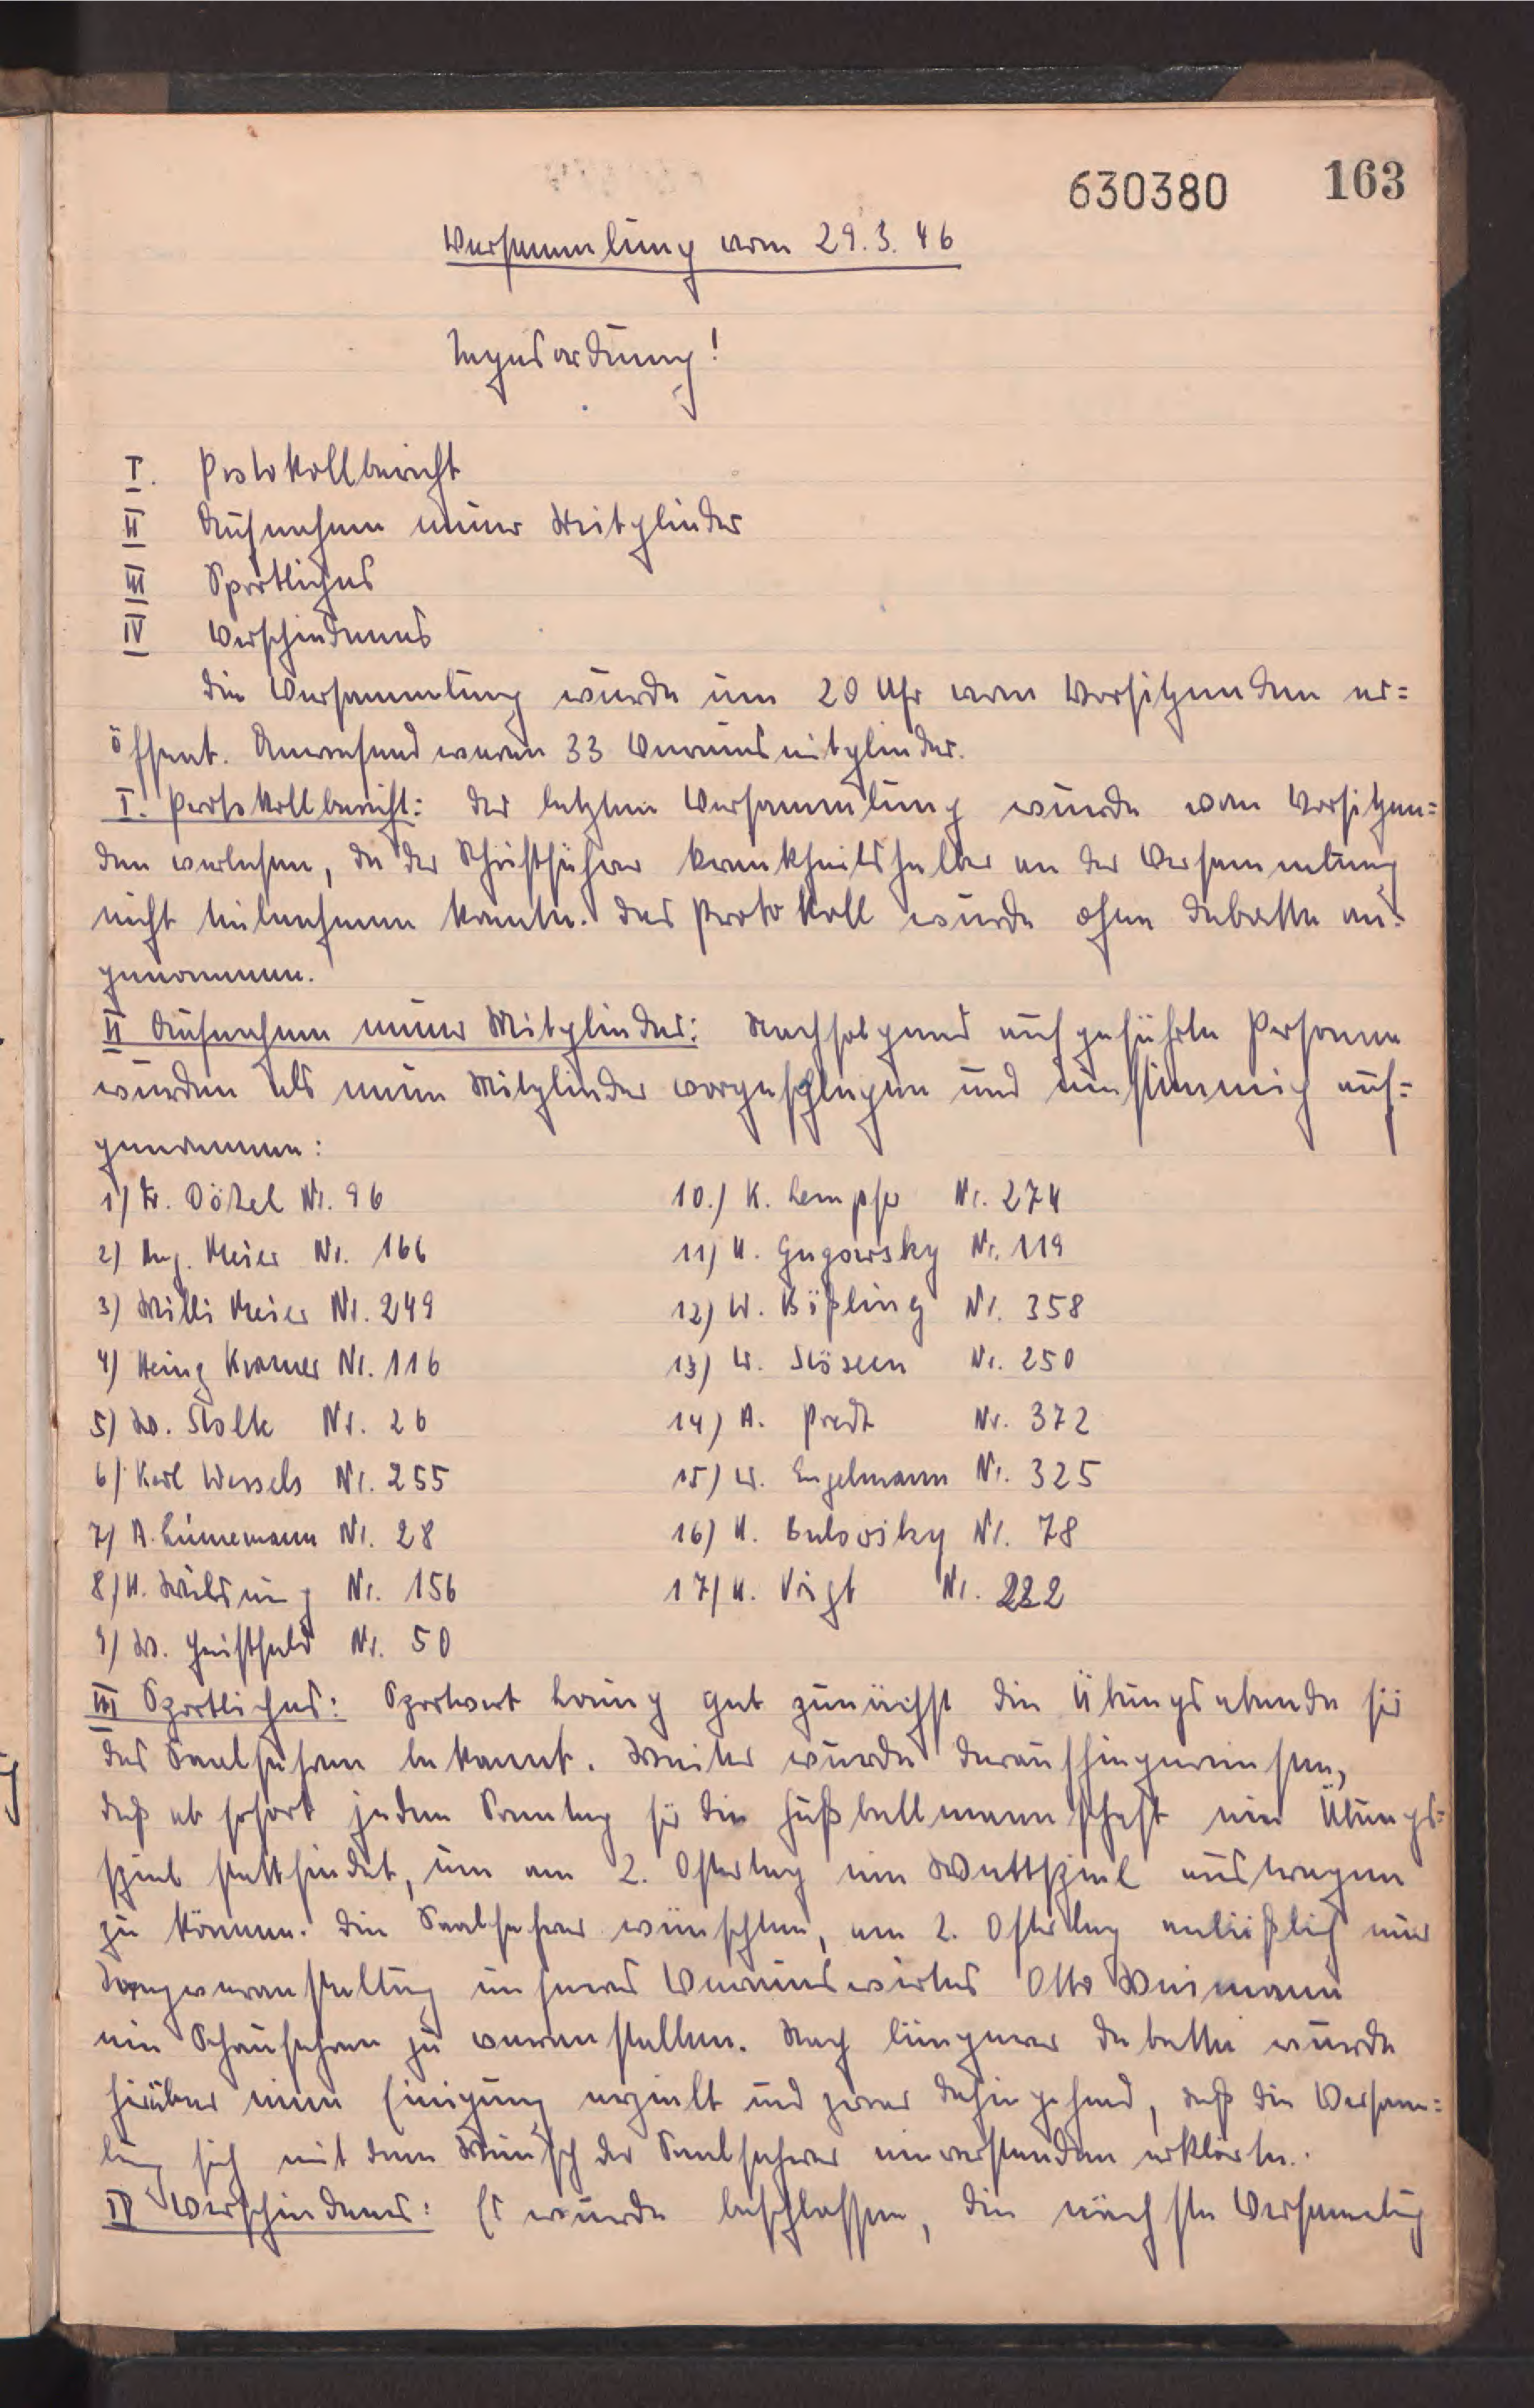 630380 163
Versammlung vom 29.3.46
Tagesordnung!
I. Protokollbericht
II Aufnahme neuer Mitglieder
III Sportliches
IV Verschiedenes
Die Versammlung wurde um 20 Uhr vom Vorsitzenden er=
öffent. Anwesend waren 33 Vereinsmitglieder.
I. Protokollbericht: der letzten Versammlung wurde vom Vorsitzen=
den verlesen, da der Schriftführer krankheitshalber an der Versammlung
nicht teilnehmen konnte. Das Protokoll wurde ohne Debatte an=
genommen.
II Aufnahme neuer Mitglieder: Nachfolgend aufgeführte Personen
wurden als neue Mitglieder vorgeschlagen und einstimmig auf=
genommen:
1) Fr. Dökel Nr. 96
2) Aug. Meier Nr. 166
3) Willi Meier Nr. 249
4) Heinz Kramer Nr. 116
5) W. Stolte Nr. 26
6) Karl Wessels Nr. 255
7) A. Lünemann Nr. 28
8) H. Nr. 156
9) W. Heistfeld Nr. 50
10.) K. Lempfe Nr. 274
11) H. Gugowsky Nr. 119
12) W. Bößling Nr. 358
13) W. Nr. 250
14) A. Predt Nr. 372
15) W. Engelmann Nr. 325
16) H. Nr. 78
17) H. Voigt Nr. 222
III Sportliches: Sportwart gab zunächst die Übungsabende für
das Saalfahren bekannt. Weiter wurde daraufhingewiesen,
daß ab sofort jeden Sonntag für die Fußballmannschaft ein Übungs=
spiel stattfindet, um am 2. Ostertag ein Wettspiel austragen
zu können. Die Saalfahrer wünschten, am 2. Ostertag anläßlich einer
Tanzveranstaltung unseres Vereinswirtes Otto Weimann
ein Schaufahren zu veranstalten. Nach längerer Debatte wurde
hierüber eine Einigung erzielt und zwar dahingehend, daß die Versam=
lung sich mit dem Wunsch der Saalfahrer einverstanden erklärte.
IV Verschiedenes: Es wurde beschlossen, die nächste Versammlung